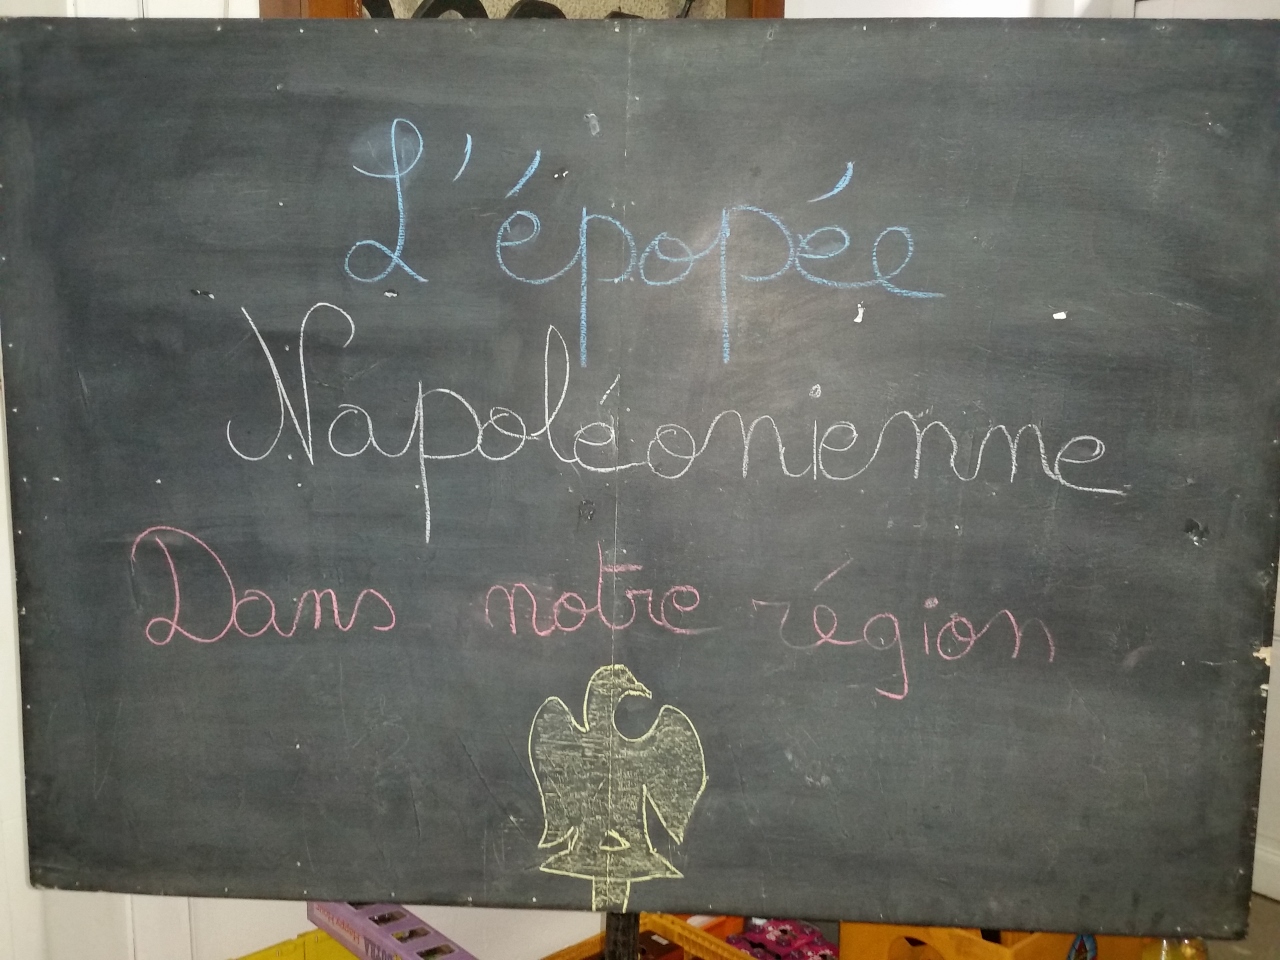 L'épopée
Napoléonienne
Dans notre région